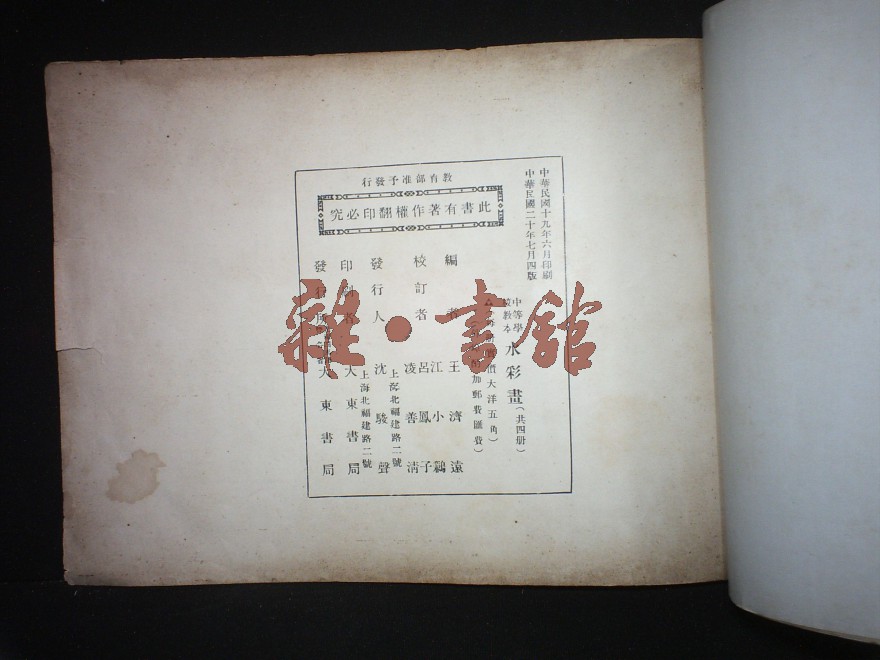 中華民國十九年六月印刷
中華民國二十年七月四版
教育部准予發行
此書有著作權翻印必究
中等學校教本 水彩畫(共四册)
價大洋五角)
加郵費匯費)
編 者 王濟遠
校訂者 江小鶼
呂鳳子
凌善清
發行人 沈駿聲
上海北福建路二號
印刷 大東書局
上海北福建路二號
發行 大東書局
雜·書館